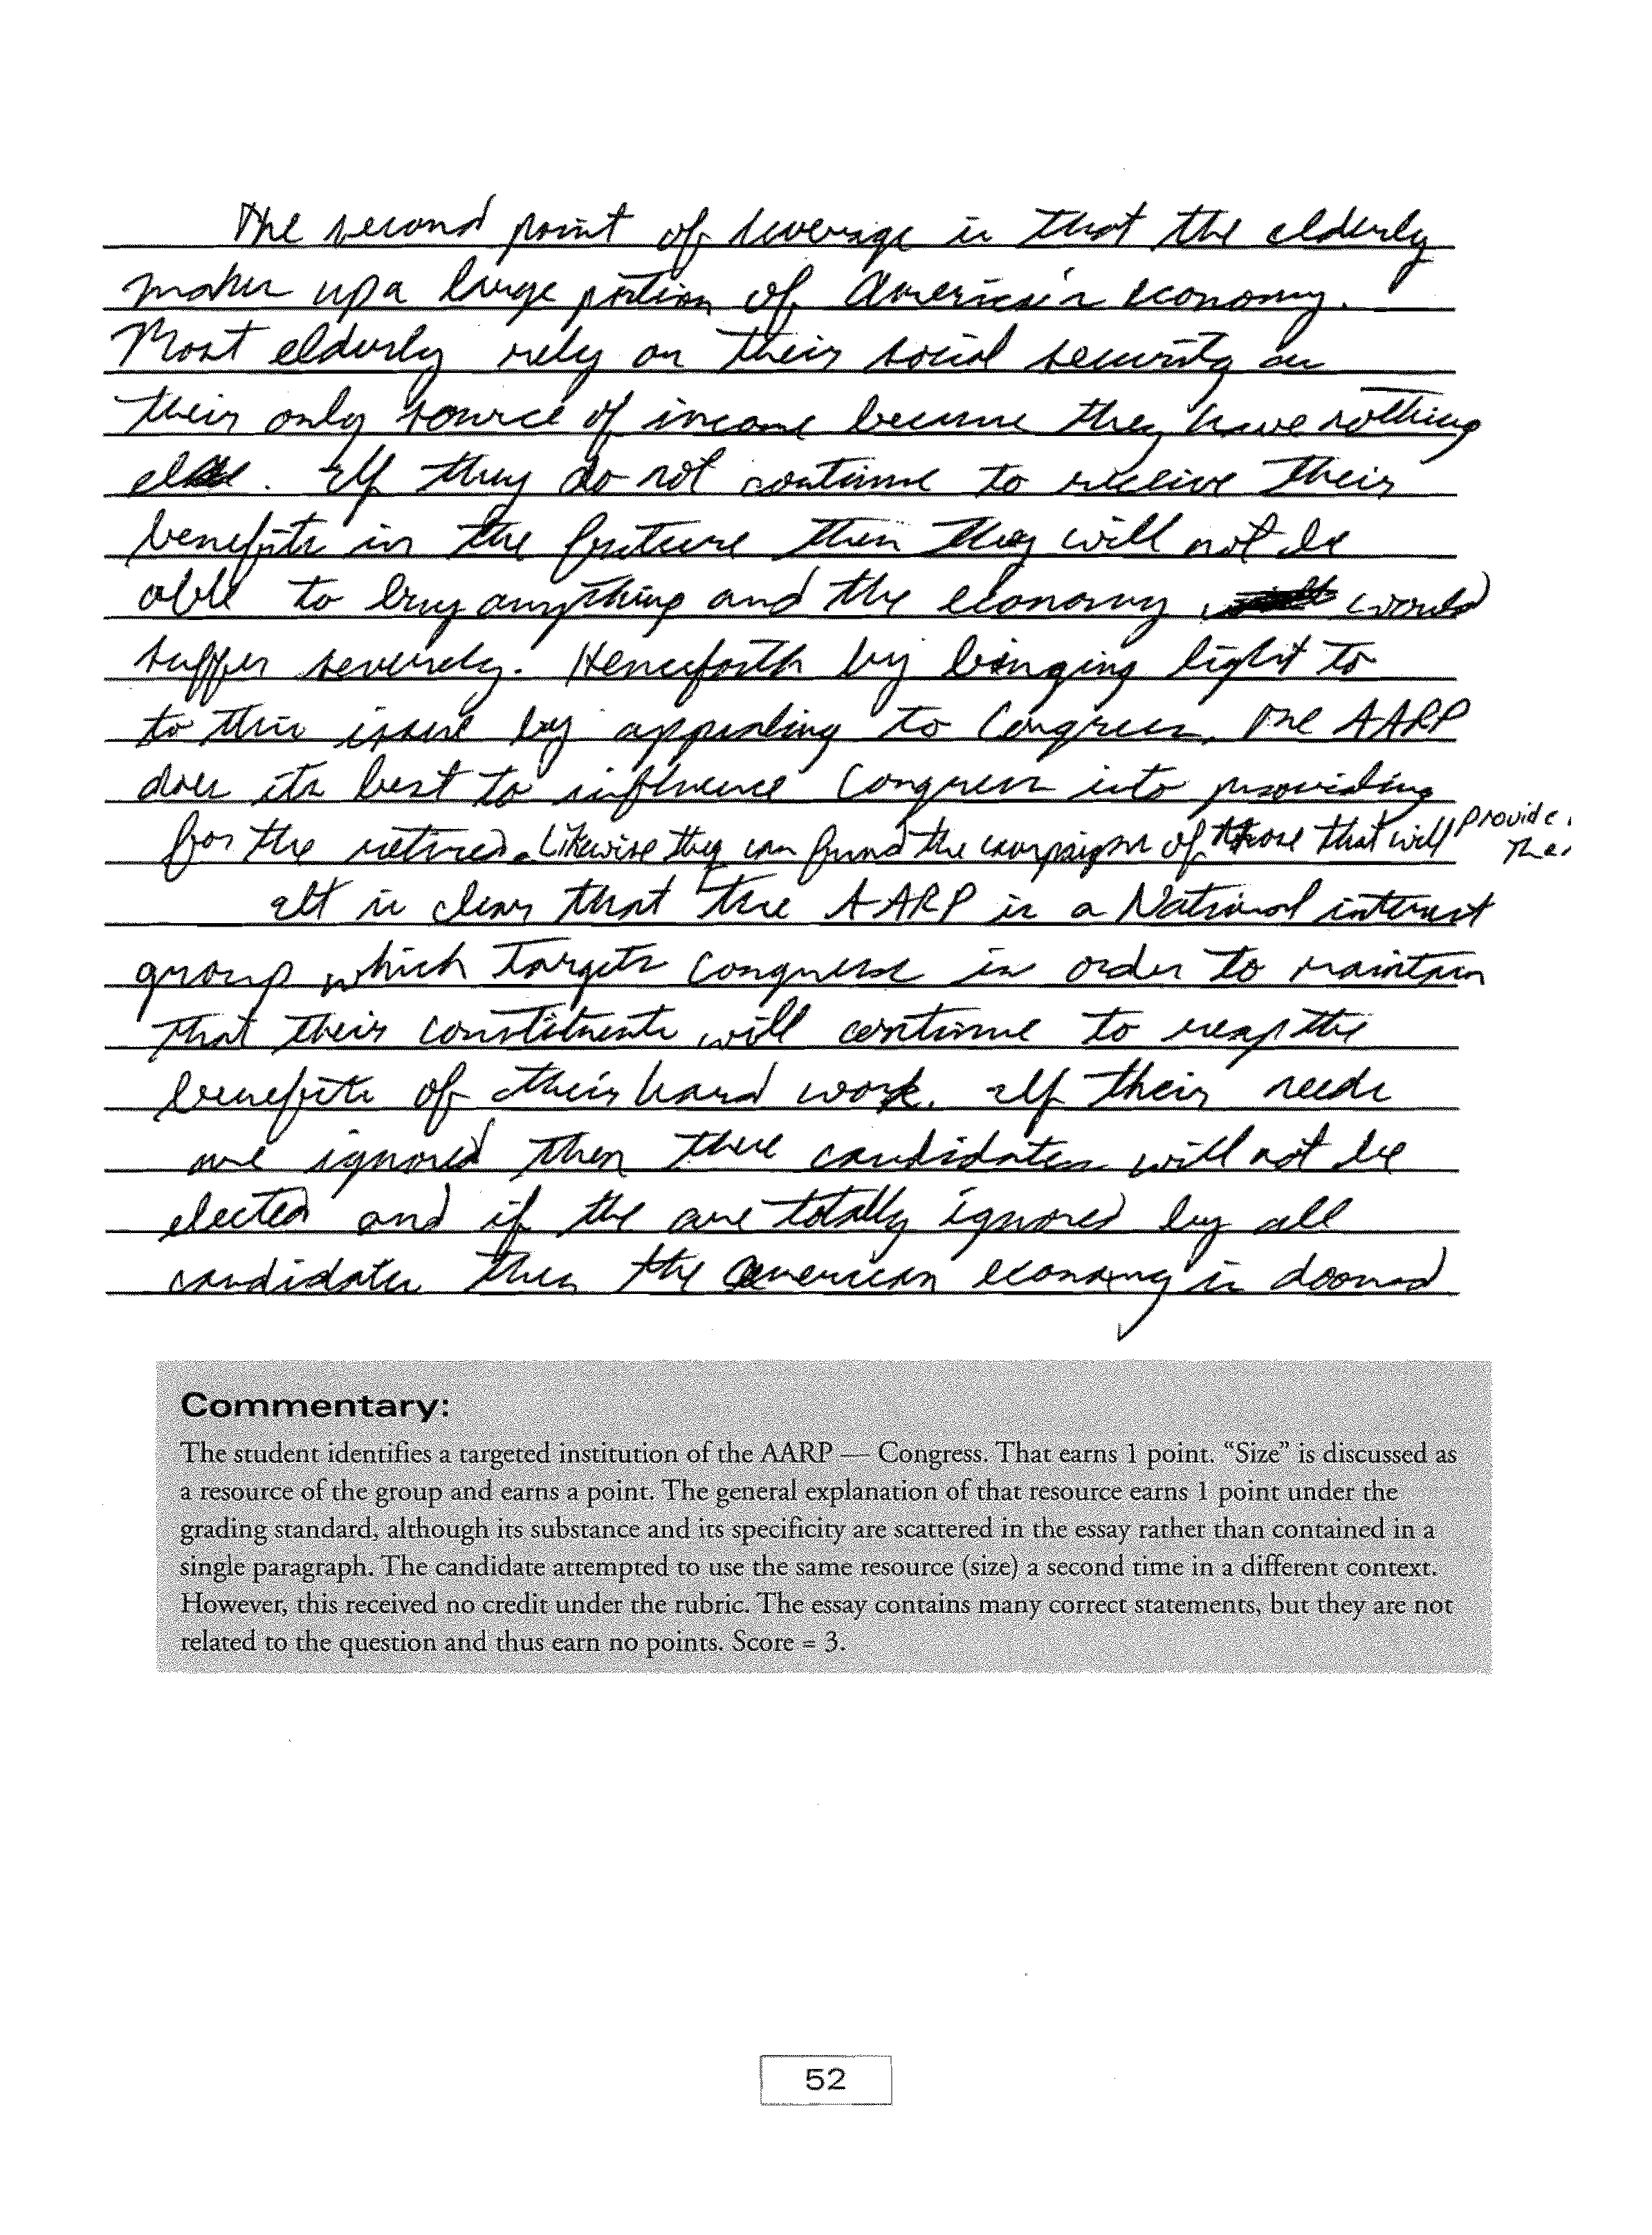 The second point of leverage is that the elderly
makes up a large portion of America's economy.
Most elderly rely on their social security as
their only source of income because they have nothing
else. If they do not continue to receive their
benefits in the future then they will not be
able to buy anything and the economy would
suffer severely. Henceforth by bringing light to
to this issue by appealing to Congress, the AARP
does its best to influence Congress into providing
for the retired. Likewise they can fund the campaigns of those that will provide
It is clear that the AARP is a National interest
group which targets congress in order to maintain
that their constituents will continue to reap the
benefits of their hard work. If their needs
are ignored then these candidates will not be
elected and if the are totally ignored by all
candidates then the American economy is doomed
Commentary:
The student identifies a targeted institution of the AARP — Congress. That earns 1 point. “Size” is discussed as
a resource of the group and earns a point. The general explanation of that resource earns 1 point under the
grading standard, although its substance and its specificity are scattered in the essay rather than contained in a
single paragraph. The candidate attempted to use the same resource (size) a second time in a different context.
However, this received no credit under the rubric. The essay contains many correct statements, but they are not
related to the question and thus earn no points. Score = 3.
52